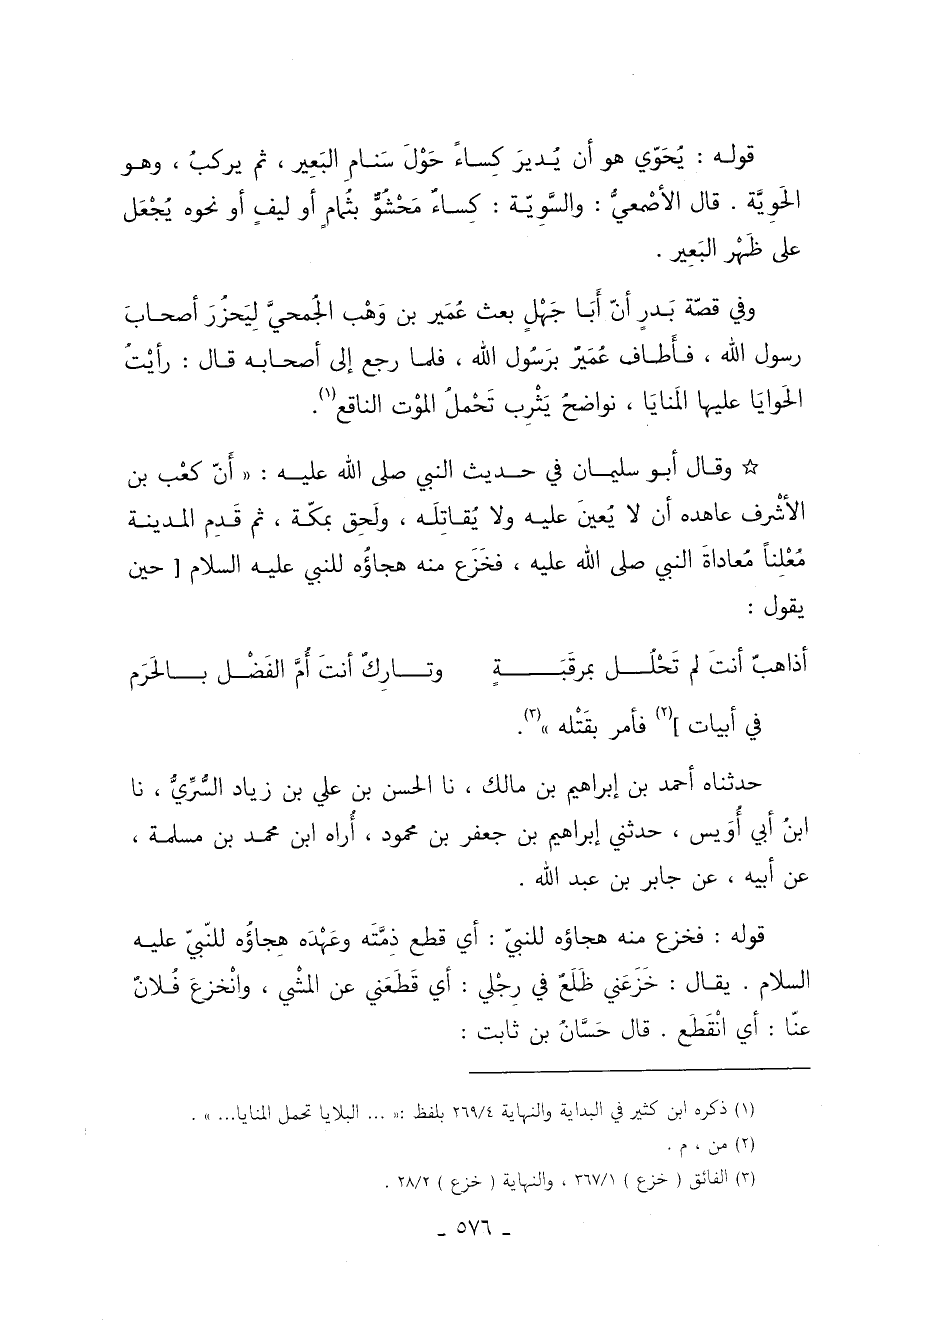 قوله : يُحَوّي هو أن يُديرَ كِساءً حَوْلَ سَنام البَعِير ، ثم يركبُ ، وهو
الحَوِيَّة . قال الأصْمعيُّ : والسَّوِيّة : كساءٌ مَحْشُوٌّ بثُمامٍ أو ليفٍ أو نحوه يُجْعَل
على ظَهْر البَعِير .
وفي قصّة بَدرٍ أنّ أَبَا جَهْلٍ بعث عُمَير بن وَهْب الجُمحيَّ ليَحزُرَ أصحابَ
رسول الله ، فأَطاف عُمَيرٌ برَسُول الله ، فلما رجع إلى أصحابه قال : رأيْتُ
الحَوايَا عليها المَنايَا ، نواضحُ يَثْرِب تَحْملُ الموْت الناقع(١).
☆ وقال أبو سليمان في حديث النبي صلى الله عليه : « أَنّ كعْب بن
الأشْرف عاهده أن لا يُعينَ عليه ولا يُقاتلَه ، ولَحِق بمكّة ، ثم قَدِم المدينة
مُعْلِناً مُعاداةَ النبي صلى الله عليه ، فخَزَع منه هجاؤُه للنبي عليه السلام [ حين
يقول :
أذاهبٌ أنتَ لم تَحْلُل بمرقَبَةٍ وتاركٌ أنتَ أُمَّ الفَضْل بالحَرَم
في أبيات ](٢) فأمر بقَتْله »(٣).
حدثناه أحمد بن إبراهيم بن مالك ، نا الحسن بن علي بن زياد السُّرِّيُّ ، نا
ابنُ أبي أُوَيس ، حدثني إبراهيم بن جعفر بن محمود ، أُراه ابن محمد بن مسلمة ،
عن أبيه ، عن جابر بن عبد الله .
قوله : فخزع منه هجاؤه للنبيّ : أي قطع ذِمَّتَه وعَهْدَه هجاؤُه للنّبيّ عليه
السلام . يقال : خَزَعَني ظَلَعٌ في رِجْلي : أي قَطَعَني عن المشْي ، وانْخزعَ فُلانٌ
عنّا : أي انْقَطَع . قال حَسَّانُ بن ثابت :
(١) ذكره ابن كثير في البداية والنهاية ٢٦٩/٤ بلفظ :« ... البلايا تحمل المنايا... » .
(٢) من ، م .
(٣) الفائق ( خزع ) ٣٦٧/١ ، والنهاية ( خزع ) ٢٨/٢ .
ـ ٥٧٦ ـ